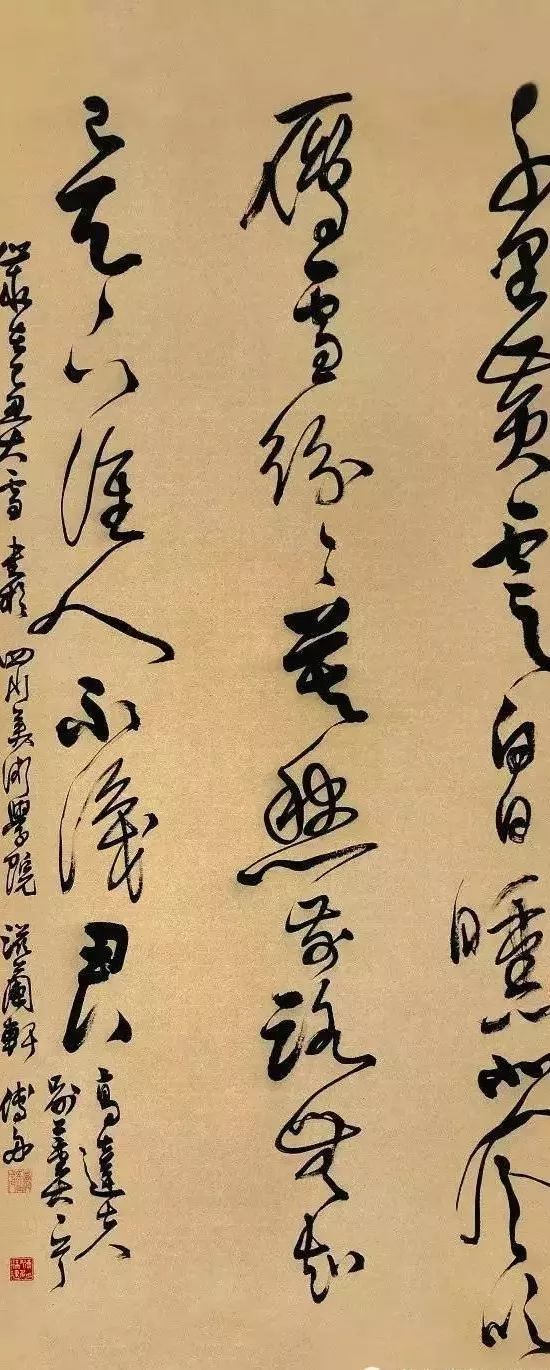 千里黃雲白日曛北風吹
雁雪紛〻莫愁前路無知
己天下誰人不識君
高達夫
別董大
歲在己丑大雪 書於 四川美術學院 滋蘭軒 傅舟